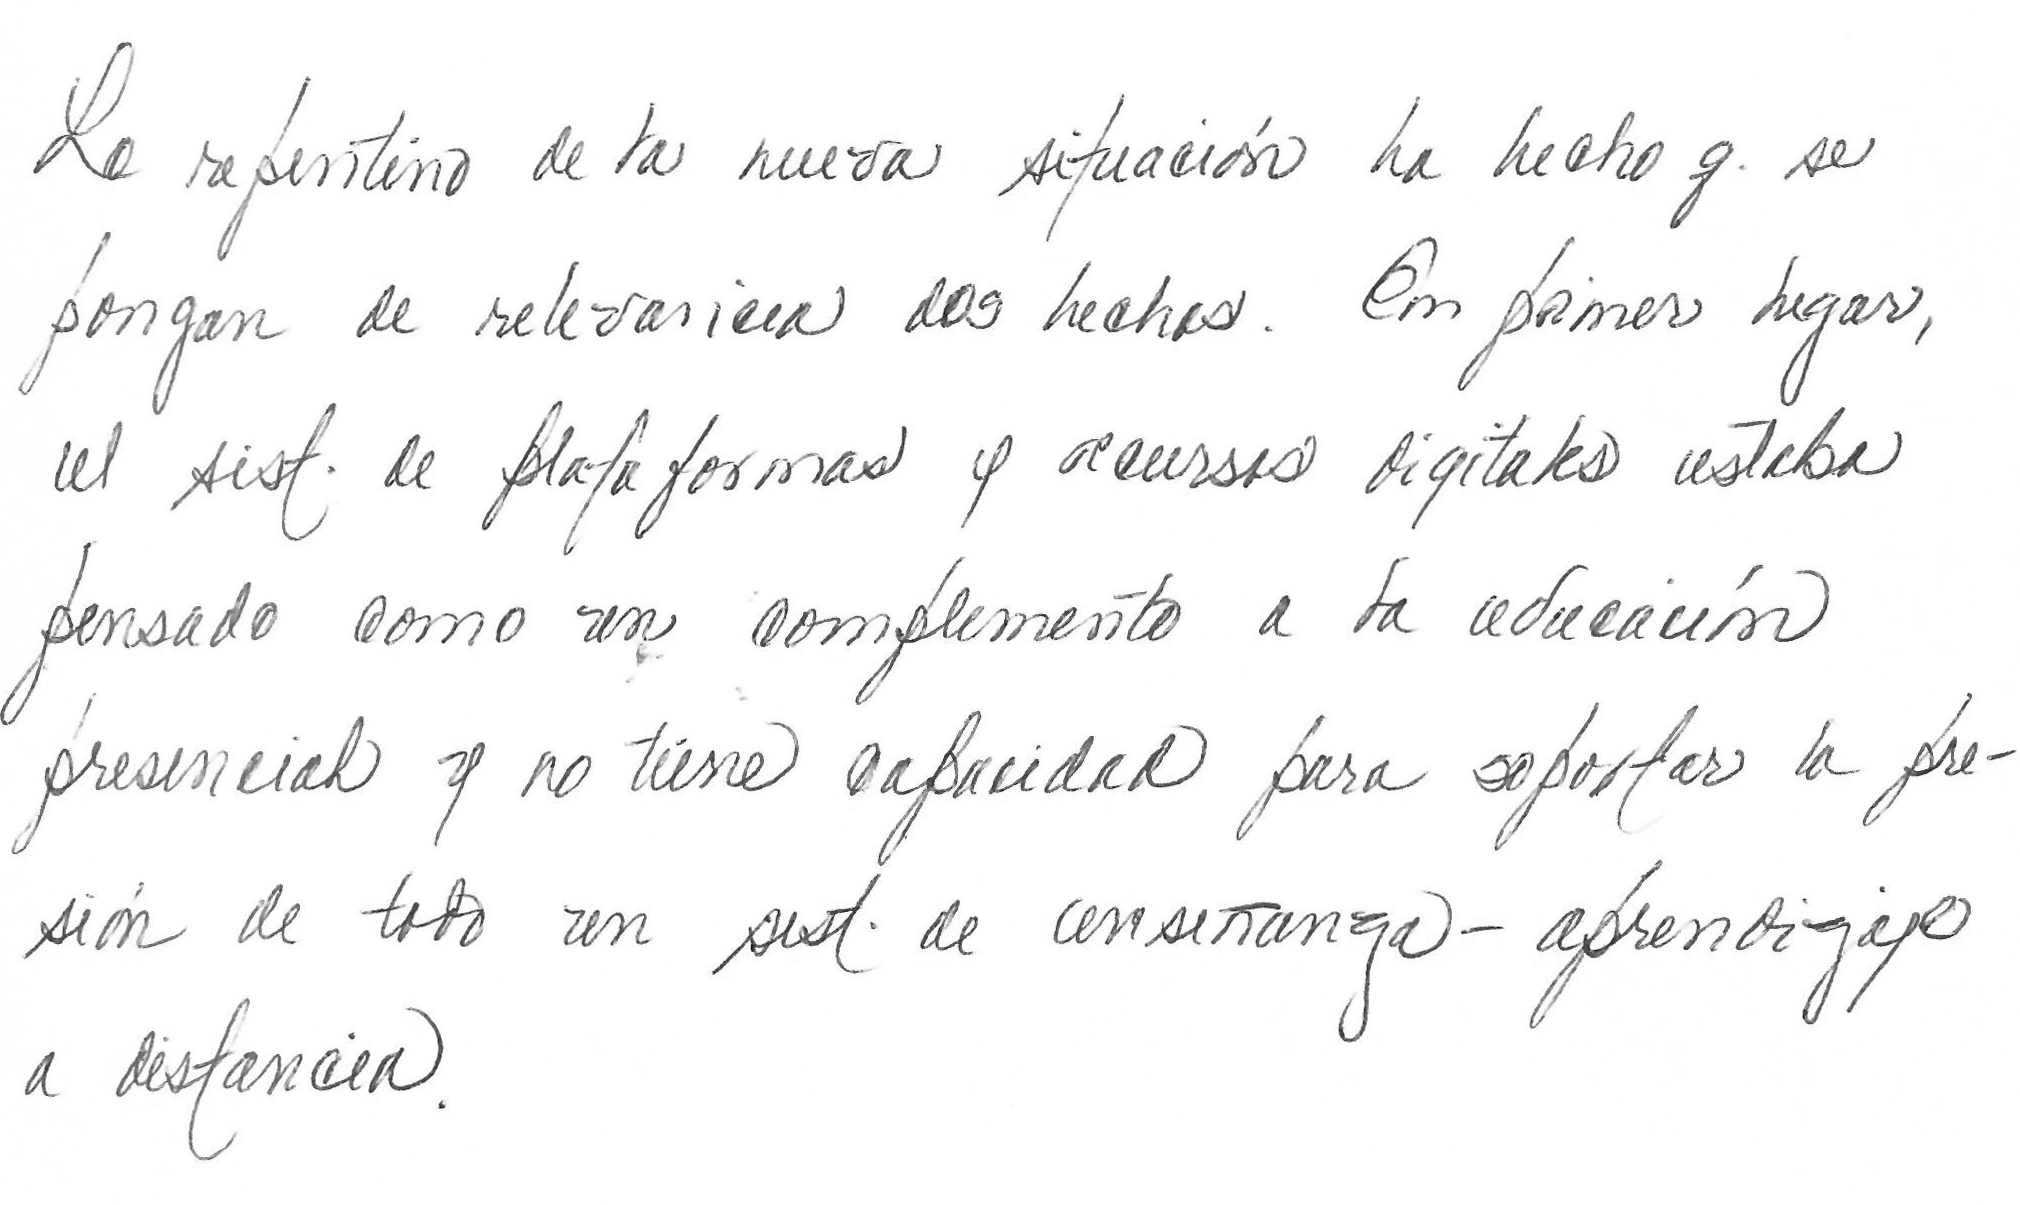 Lo repentino de la nueva situación ha hecho q. se
pongan de relevancia dos hechos. En primer lugar,
el sist. de plataformas y recursos digitales estaba
pensado como un complemento a la educación
presencial y no tiene capacidad para soportar la pre-
sión de todo un sist. de enseñanza - aprendizaje
a distancia.